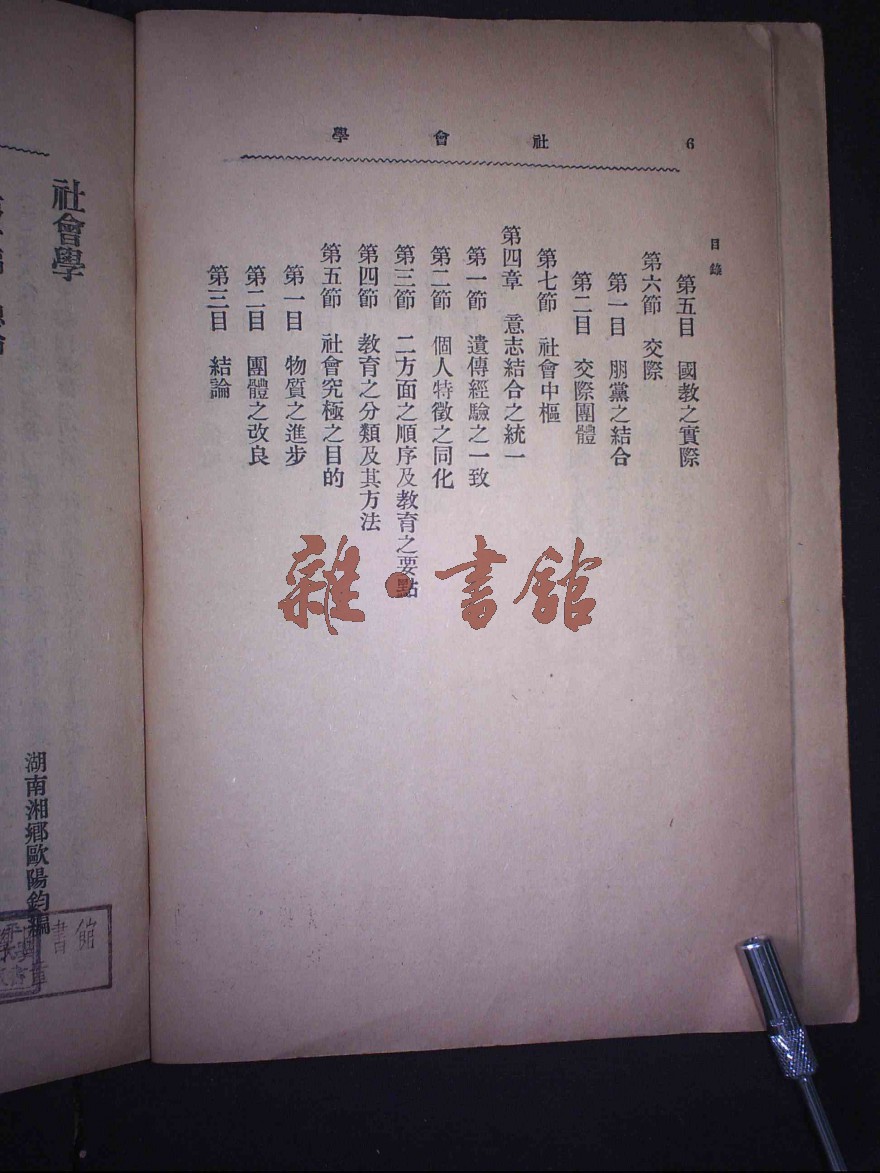 6 社會學
目錄
第五目 國教之實際
第六節 交際
第一目 朋黨之結合
第二目 交際團體
第七節 社會中樞
第四章 意志結合之統一
第一節 遺傳經驗之一致
第二節 個人特徵之同化
第三節 二方面之順序及教育之要點
第四節 教育之分類及其方法
第五節 社會究極之目的
第一目 物質之進步
第二目 團體之改良
第三目 結論
雜·書館
社會學
湖南湘鄉歐陽鈞編
書館